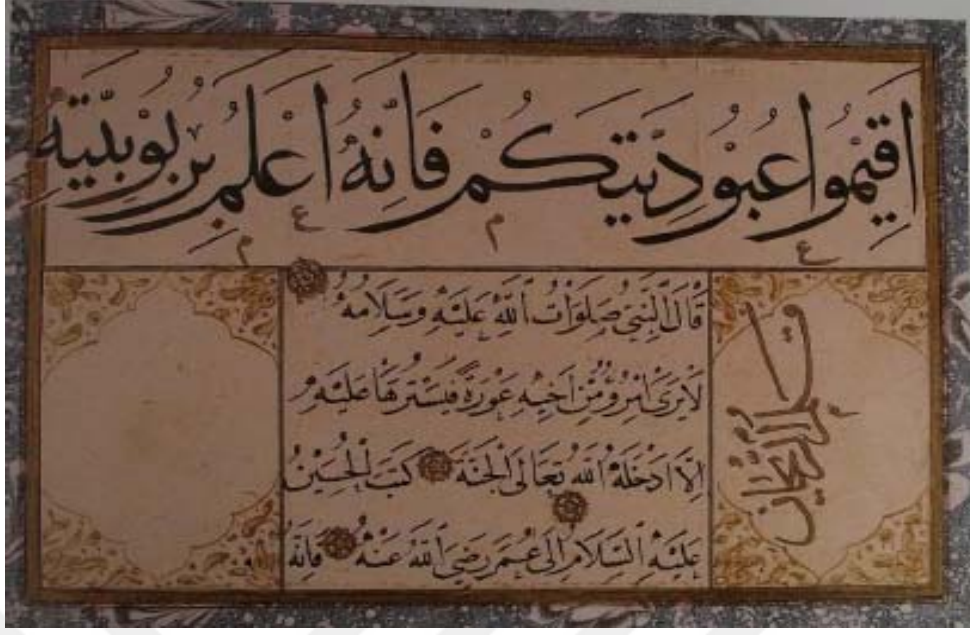 اقيموا عبوديتكم فانه اعلم بربوبيته
قال النبي صلوات الله عليه وسلامه
لا يرى امرؤ من اخيه عورة فيسترها عليه
الا ادخله الله تعالى الجنة كتب الحسين
عليه السلام الى عمر رضي الله عنه فانه